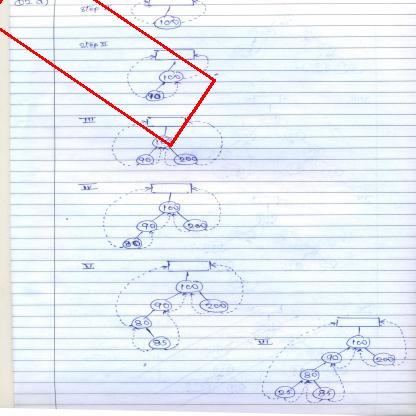 Step I
100
Step II
100
90
III
90 200
IV
100
90 200
80
V
100
90 200
80
85
VI
100
90 200
80
25 85